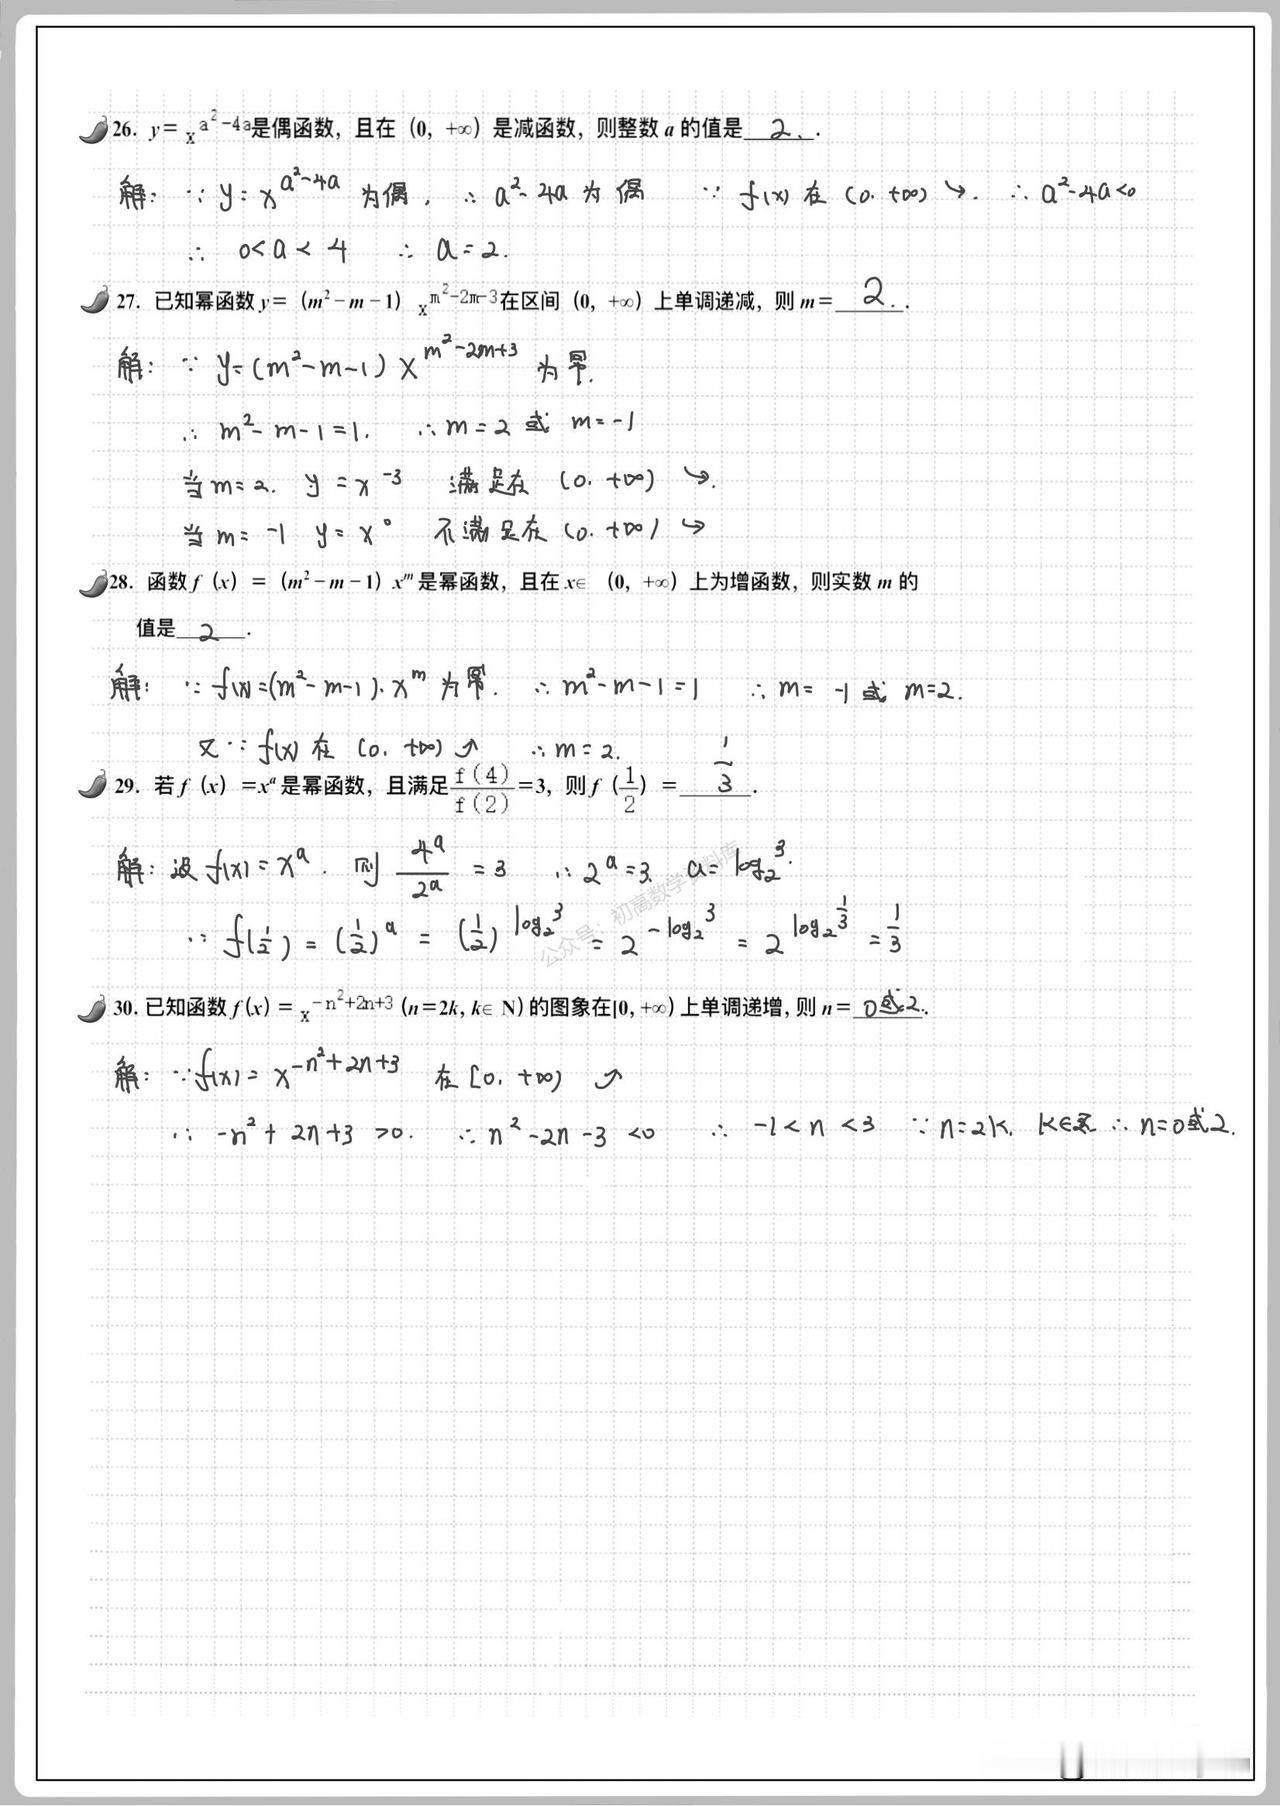 26. y=x^(a²-4a)是偶函数，且在（0，+∞）是减函数，则整数 a 的值是 2. .
解：∵ y=x^(a²-4a) 为偶. ∴ a²-4a 为偶 ∵ f(x) 在 (0.+∞) ↘. ∴ a²-4a<0
∴ 0<a<4 ∴ a=2.
27. 已知幂函数 y=（m²-m-1）x^(m²-2m-3)在区间（0，+∞）上单调递减，则 m= 2. .
解：∵ y=(m²-m-1) x^(m²-2m+3) 为幂.
∴ m²-m-1=1. ∴m=2 或 m=-1
当m=2. y=x^-3 满足在 (0.+∞) ↘.
当m=-1 y=x^0 不满足在 (0.+∞) ↘
28. 函数 f（x）=（m²-m-1）x^m 是幂函数，且在 x∈（0，+∞）上为增函数，则实数 m 的
值是 2 .
解：∵ f(x)=(m²-m-1).x^m 为幂. ∴ m²-m-1=1 ∴m=-1 或 m=2.
又∵ f(x) 在 (0.+∞) ↗ ∴m=2.
29. 若 f（x）=x^a 是幂函数，且满足f(4)/f(2)=3，则 f（1/2）= 1/3 .
解：设 f(x)=x^a. 则 4^a/2^a =3 ∴ 2^a=3. a=log₂3.
∵ f(1/2)=(1/2)^a=(1/2)^(log₂3)=2^(-log₂3)=2^(log₂1/3)=1/3
30. 已知函数 f(x)=x^(-n²+2n+3)(n=2k, k∈N)的图象在[0,+∞)上单调递增, 则 n= 0或2 .
解：∵f(x)=x^(-n²+2n+3) 在 [0.+∞) ↗
∴ -n²+2n+3>0. ∴ n²-2n-3<0 ∴ -1<n<3 ∵ n=2k. k∈Z ∴ n=0或2.